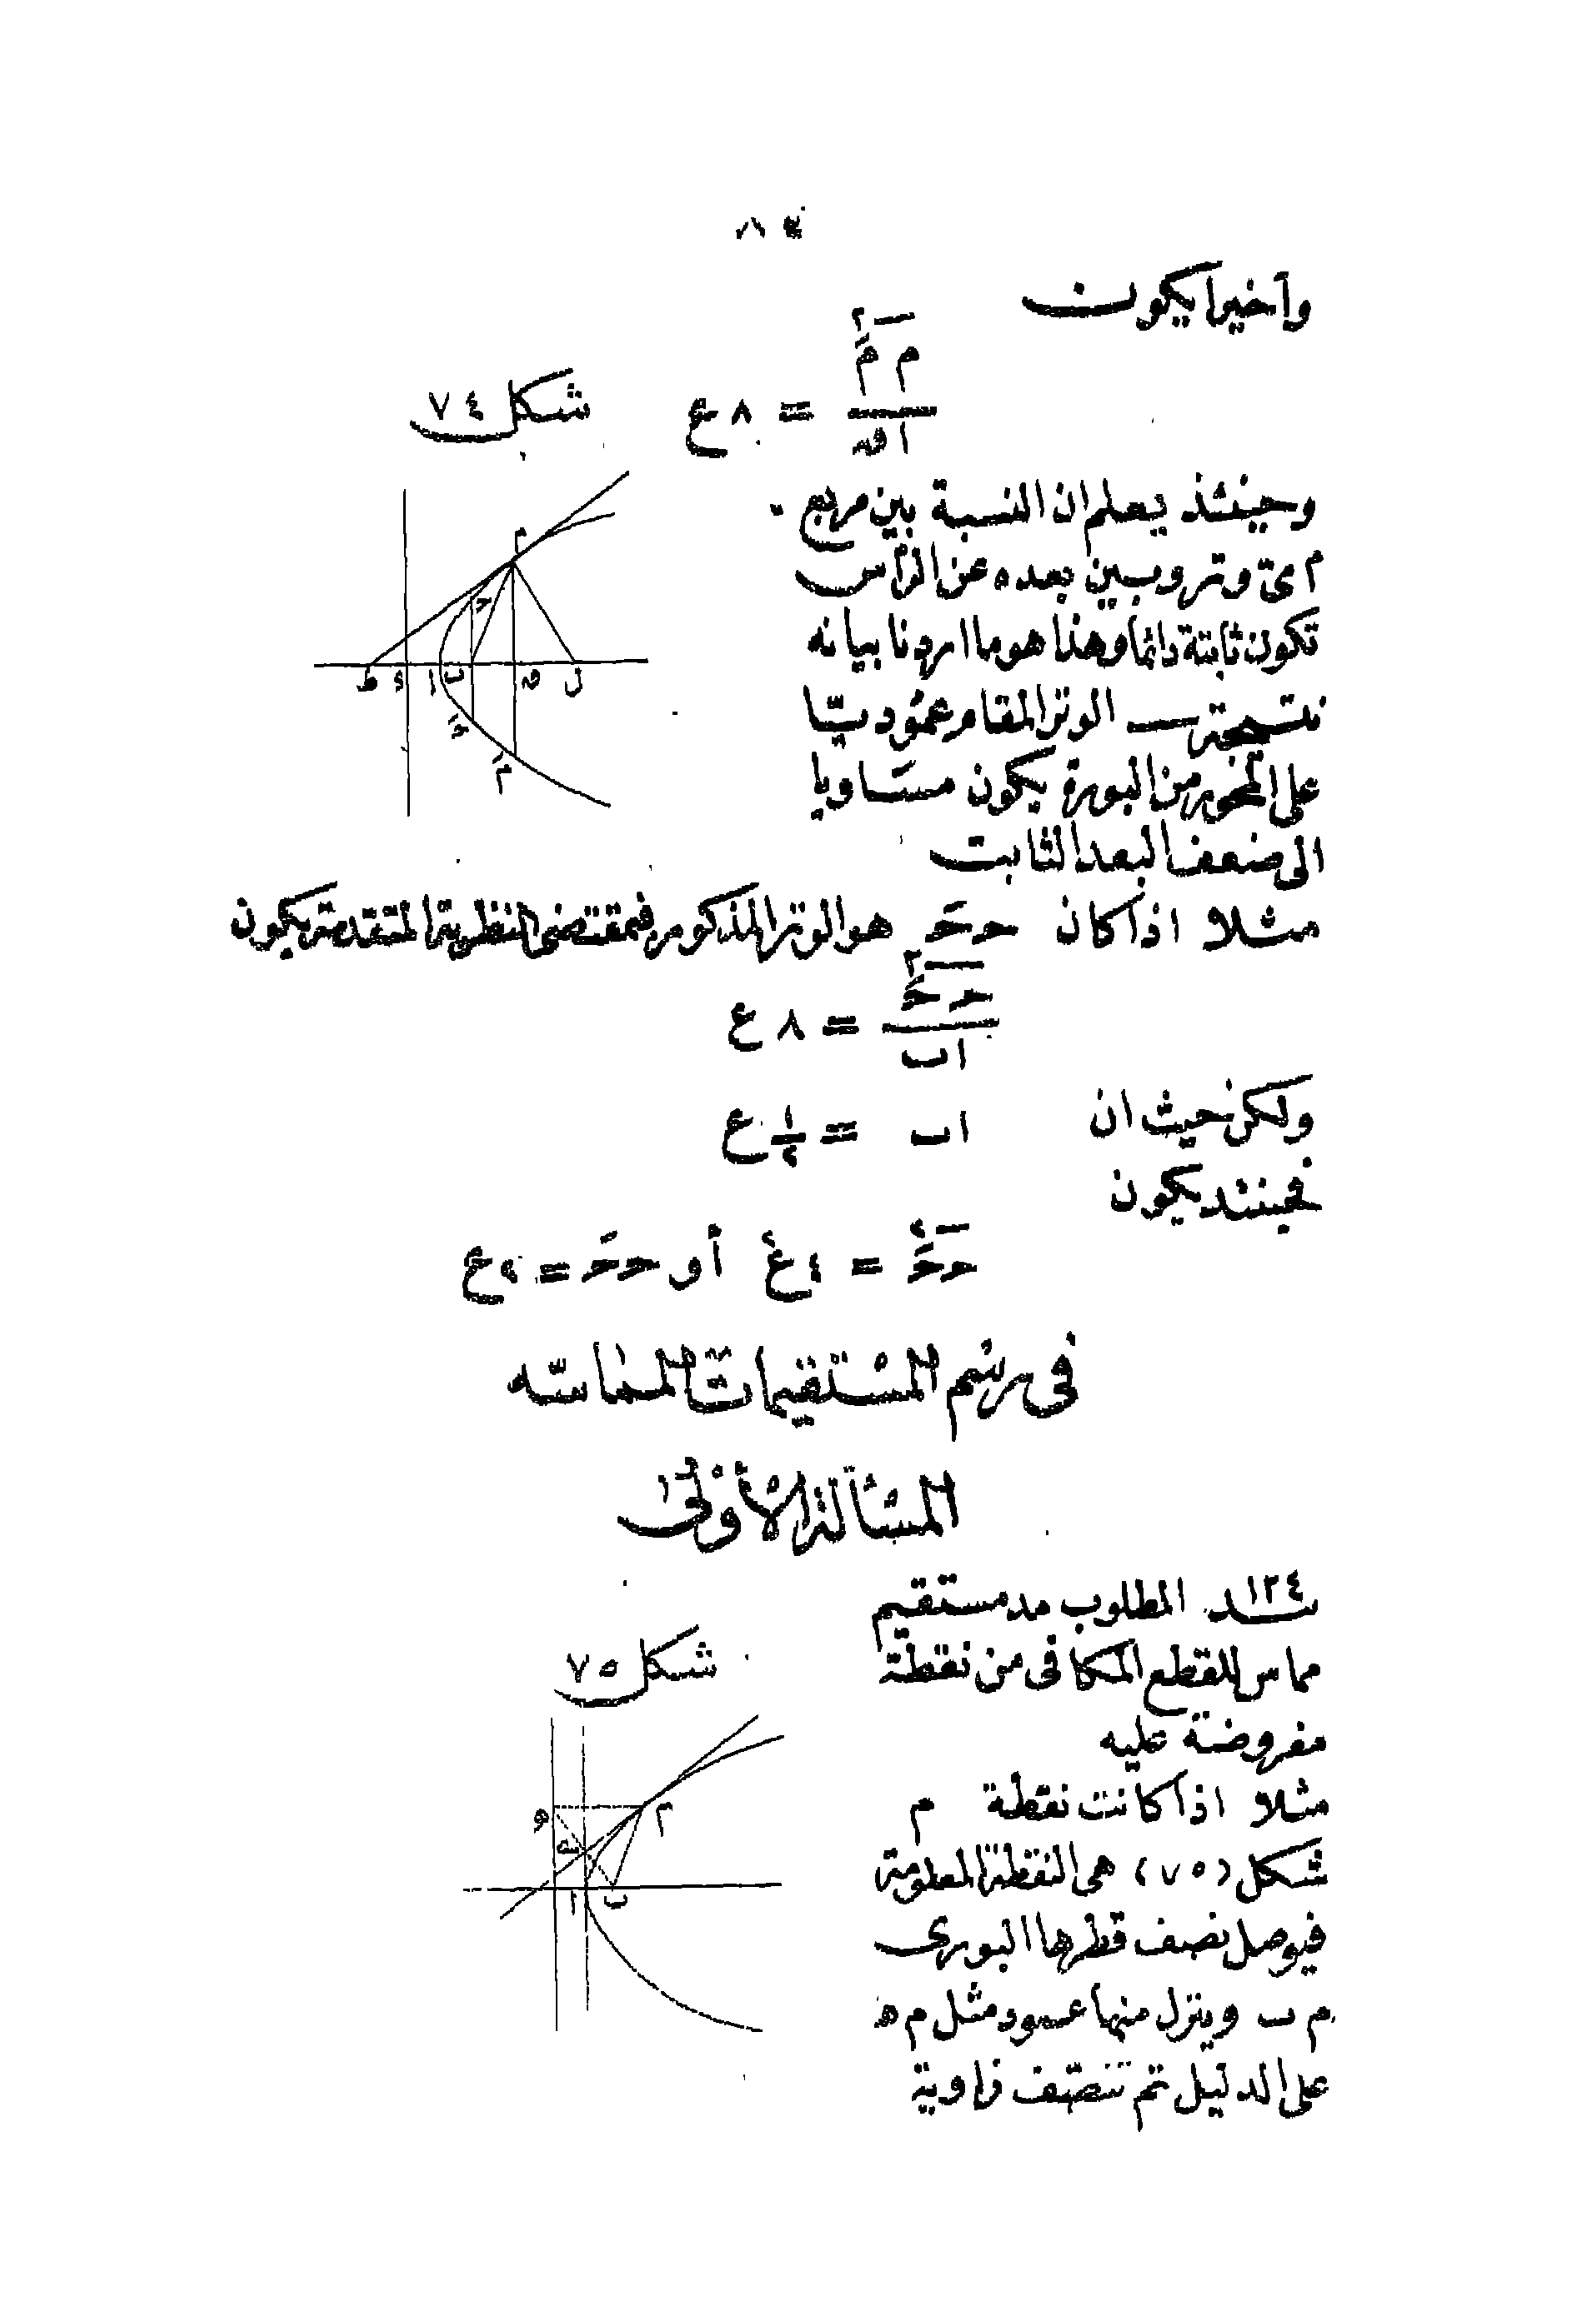 ٨٤
وأخيرا يكون
م مَ٢ / ا ق = ٨ ع
شكل ٧٤
وحينئذ يعلم ان النسبة بين مربع
اى وتر وبين بعده عن الرأس
تكون ثابتة دائما وهذا هو ما اردنا بيانه
نتيجة الوتر المقام عموديا
على المحور من البورة يكون مساويا
الى ضعف البعد الثابت
مثلا اذا كان حـ حـَ هو الوتر المذكور فبمقتضى النظرية المتقدمة يكون
حـ حـَ٢ / ا ب = ٨ ع
ولكن حيث ان ا ب = ١/٢ ع
فحينئذ يكون
حـ حـَ٢ = ٤ ع٢ أو حـ حـَ = ٢ ع
م
حـ
ط ء ا ب ق ل
حـَ
مَ
فى رسم المستقيمات المماسه
المسألة الأولى
١٢٤
سد المطلوب مد مستقيم
مماس للقطع المكافى من نقطة
مفروضة عليه
مثلا اذا كانت نقطة م
شكل (٧٥) هى النقطة المعلومة
فيوصل نصف قطرها البورى
م ب وينزل منها عمود مثل م ه
على الدليل ثم تنصف زاوية
شكل ٧٥
ه م
ا ب